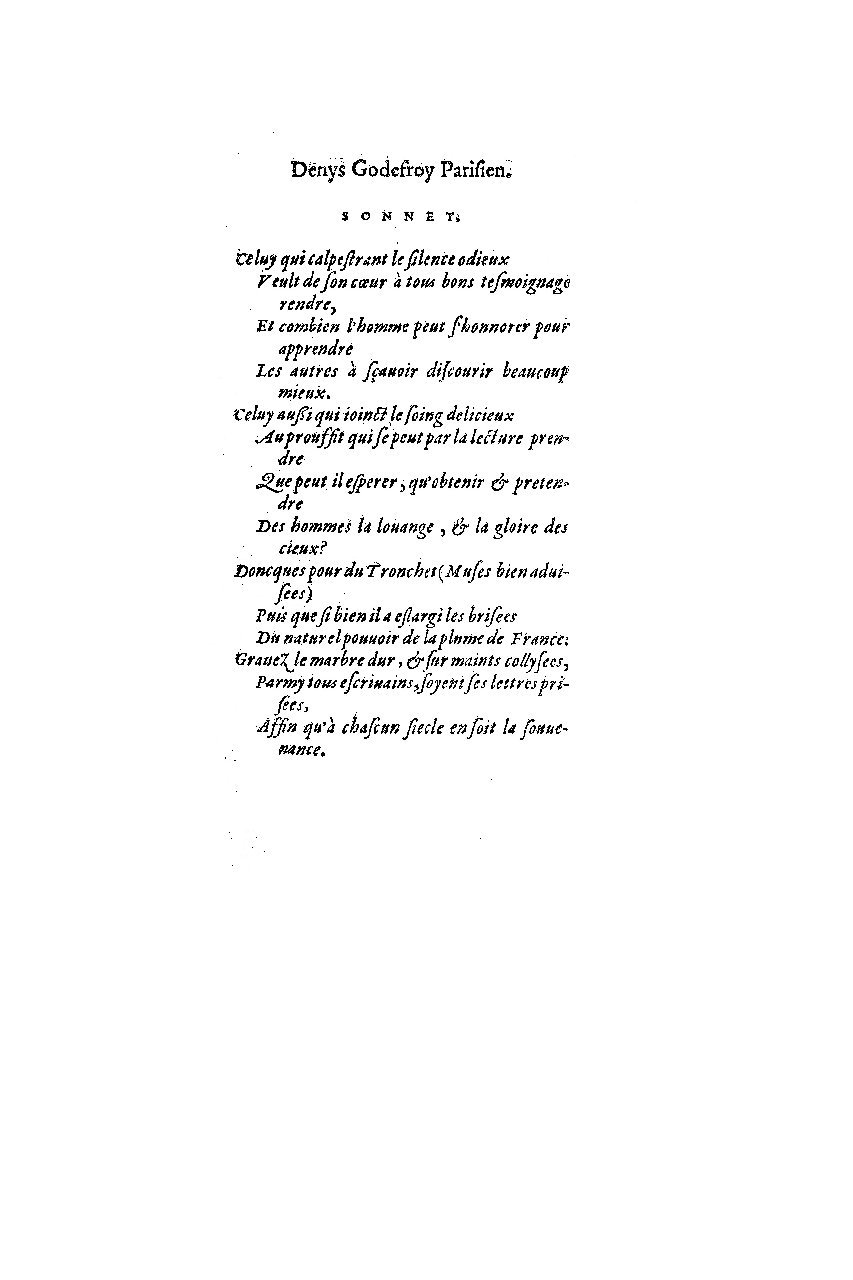 Denys Godefroy Pariſien.
SONNET.
Celuy qui calpeſtrant le ſilence odieux
Veult de ſon cœur à tous bons teſmoignage
rendre,
Et combien l'homme peut ſ'honnorer pour
apprendre
Les autres à ſçauoir diſcourir beaucoup
mieux.
Celuy auſſi qui ioinct le ſoing delicieux
Au prouffit qui ſe peut par la lecture pren-
dre
Que peut il eſperer, qu'obtenir & preten-
dre
Des hommes la louange, & la gloire des
cieux?
Doncques pour du Tronchet (Muſes bien adui-
ſees)
Puis que ſi bien il a eſlargi les briſees
Du naturel pouuoir de la plume de France:
Grauez le marbre dur, & ſur maints collyſees,
Parmy tous eſcriuains, ſoyent ſes lettres pri-
ſees,
Affin qu'à chaſcun ſiecle en ſoit la ſouue-
nance.